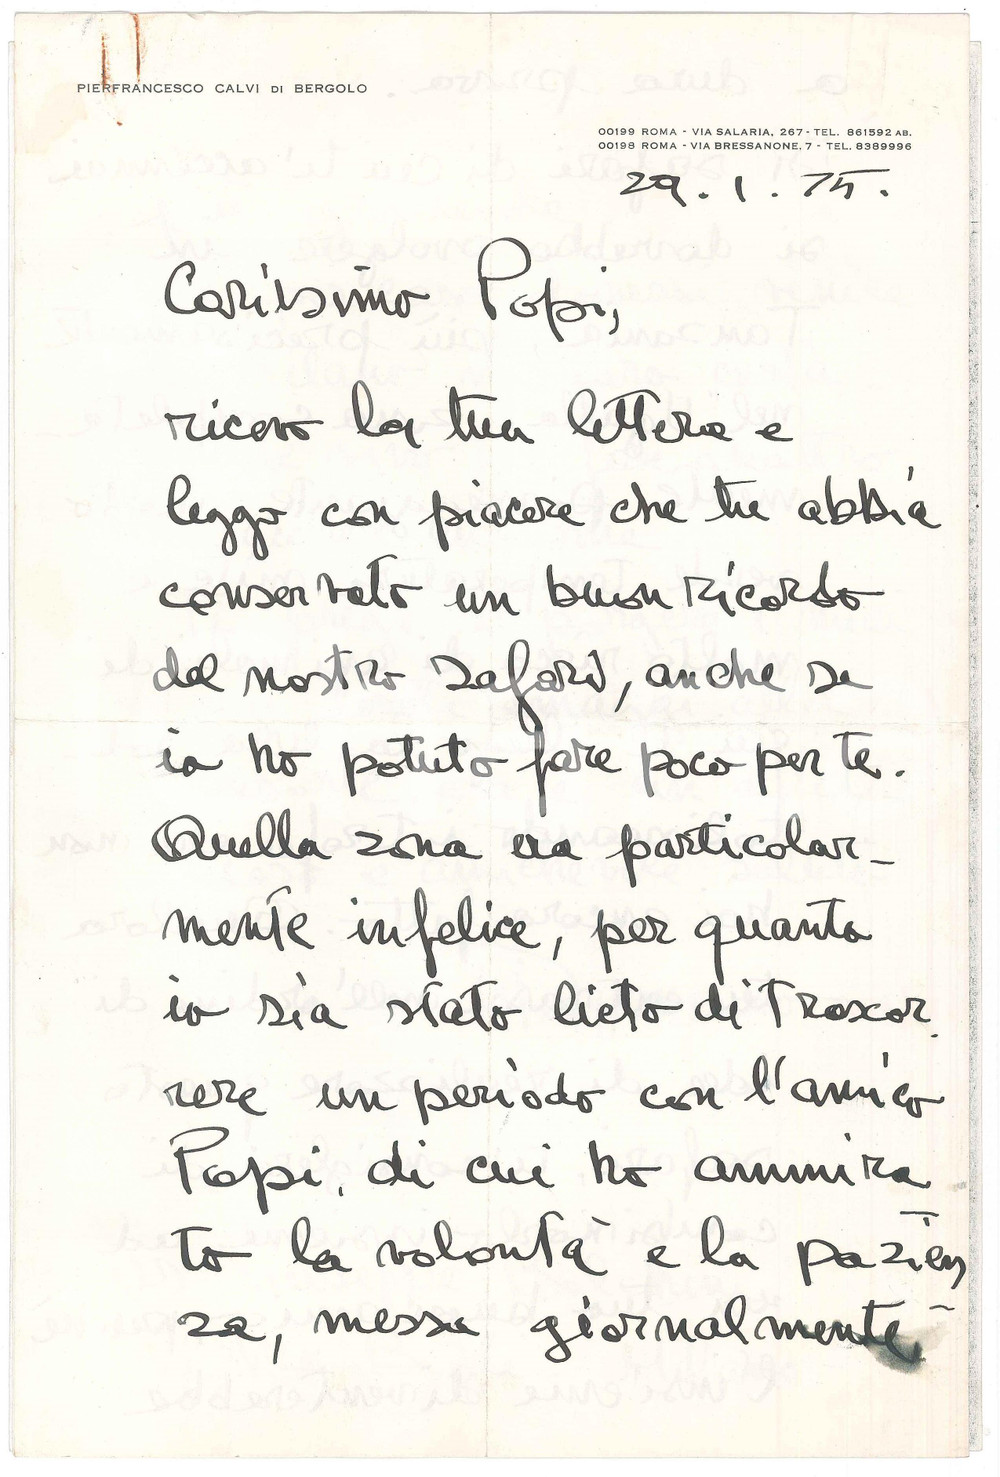 PIERFRANCESCO CALVI DI BERGOLO
00199 ROMA - VIA SALARIA, 267 - TEL. 861592 AB.
00198 ROMA - VIA BRESSANONE, 7 - TEL. 8389996
29.1.75.
Carissimo Popi,
ricevo la tua lettera e
leggo con piacere che tu abbia
conservato un buon ricordo
del nostro safari, anche se
io ho potuto fare poco per te.
Quella zona era particolar-
mente infelice, per quanto
io sia stato lieto di trascor
rere un periodo con l'amico
Popi, di cui ho ammira
to la volontà e la pazien
za, messa giornalmente